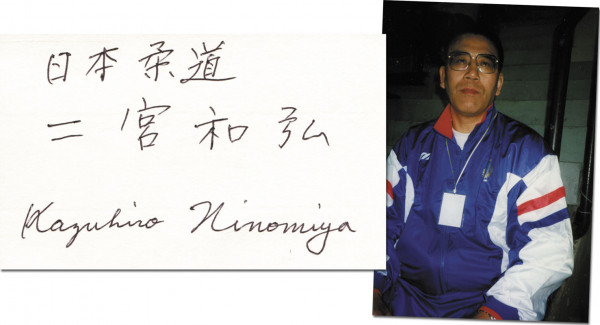 日本柔道
二宮和弘
Kazuhiro Ninomiya